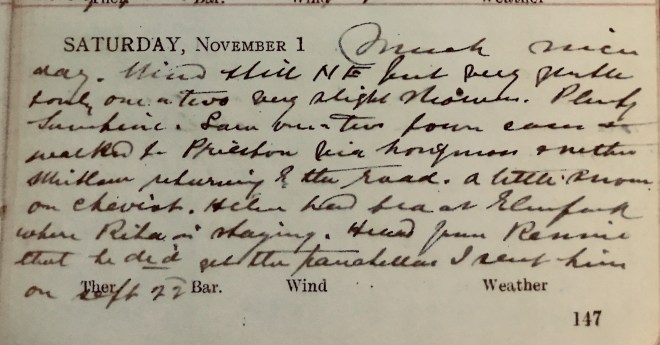 Ther. Bar. Wind Weather
SATURDAY, NOVEMBER 1 Much nicer
day. Wind still NE but very gentle
& only one or two very slight showers. Plenty
Sunshine. Saw one or two town cases &
walked to via &
returning by the road. A little snow
on Cheviot. Helen had tea at
where Rita is staying. Heard from Rennie
that he did get the I sent him
on Sept 22
Ther. Bar. Wind Weather
147